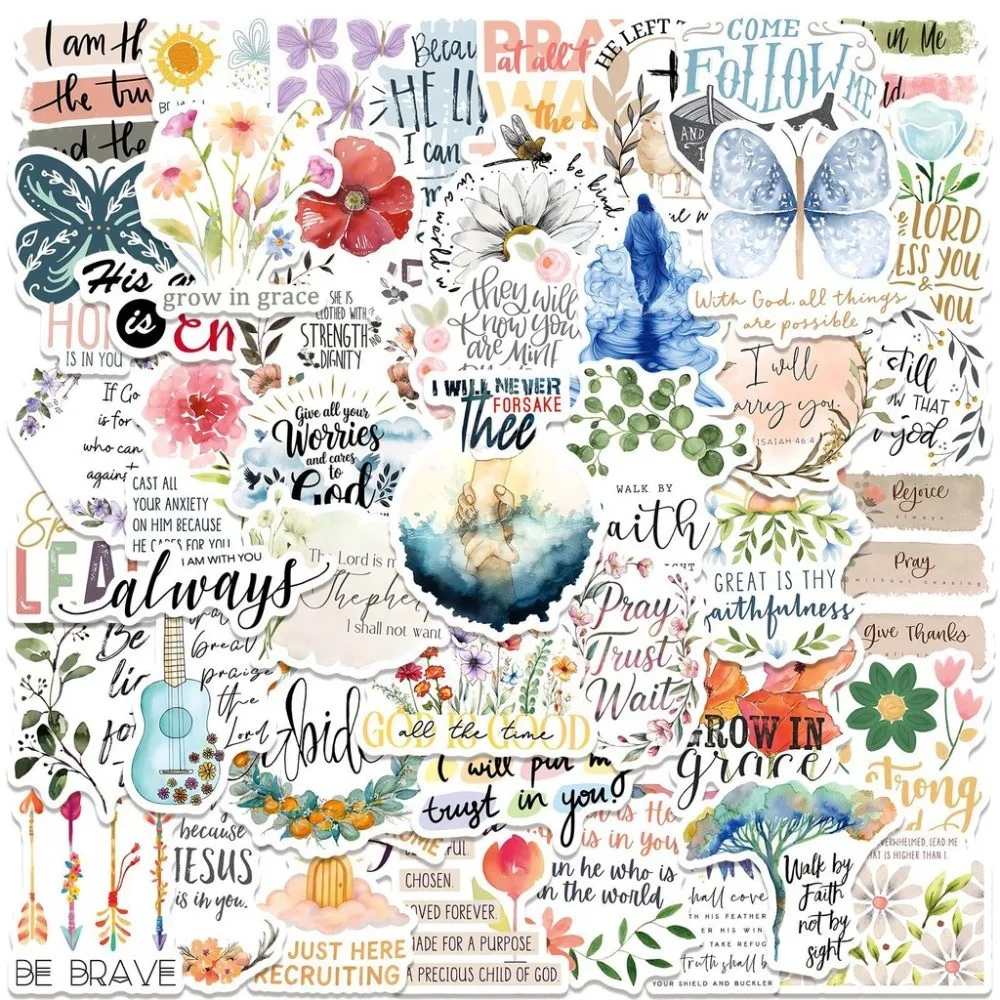 I am th
the tru
and the
Becau
HE LI
I can
PRA
at all t
WA
the
HE LEFT
COME
FOLLOW
ME
AND
I
in Me
His
HO
is
IS IN YOU
grow in grace
SHE IS
CLOTHED WITH
STRENGTH
AND
DIGNITY
in a world
be kind
they will
know you
are MINE
With God, all things
are possible
LORD
ESS YOU
&
YOU
I will
arry you.
ISAIAH 46:4
still
OW THAT
god
If Go
is for
who can
against
Give all your
Worries
and cares
to
God
I WILL NEVER
FORSAKE
Thee
CAST ALL
YOUR ANXIETY
ON HIM BECAUSE
HE CARES FOR YOU
WALK BY
aith
Rejoice
always
Pray
without ceasing
give Thanks
Sp
LEA
I AM WITH YOU
always
The Lord is m
Shepher
I shall not want
Pray
Trust
Wait
GREAT IS THY
aithfulness
Be
praise
the
Lord
Abid
GOD IS GOOD
all the time
GROW IN
grace
I will put my
trust in you!
trong
because
JESUS
is in you.
BE BRAVE
JUST HERE
RECRUITING
CHOSEN.
OVED FOREVER.
MADE FOR A PURPOSE.
A PRECIOUS CHILD OF GOD.
is He
is in you
an he who is
in the world
hall cove
TH HIS FEATHER
ER HIS WIN
TAKE REFUG
truth shall b
YOUR SHIELD AND BUCKLER
Walk by
Faith
not by
sight
OVERWHELMED, LEAD ME
HAT IS HIGHER THAN I.